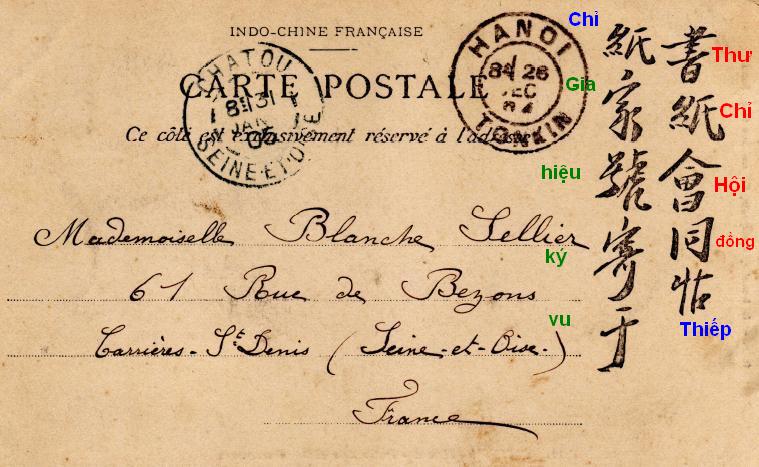 INDO-CHINE FRANÇAISE
CARTE POSTALE
Ce côté est exclusivement réservé à l'adresse
CHATOU
31
JAN
SEINE-ET-OISE
HANOI
26
DEC
TONKIN
Mademoiselle Blanche Sellier
61 Rue de Bezons
Carrières-St Denis (Seine-et-Oise.)
France
書紙會同帖
Thư
Chỉ
Hội
đồng
Thiếp
紙家號寄于
Chỉ
Gia
hiệu
ký
vu